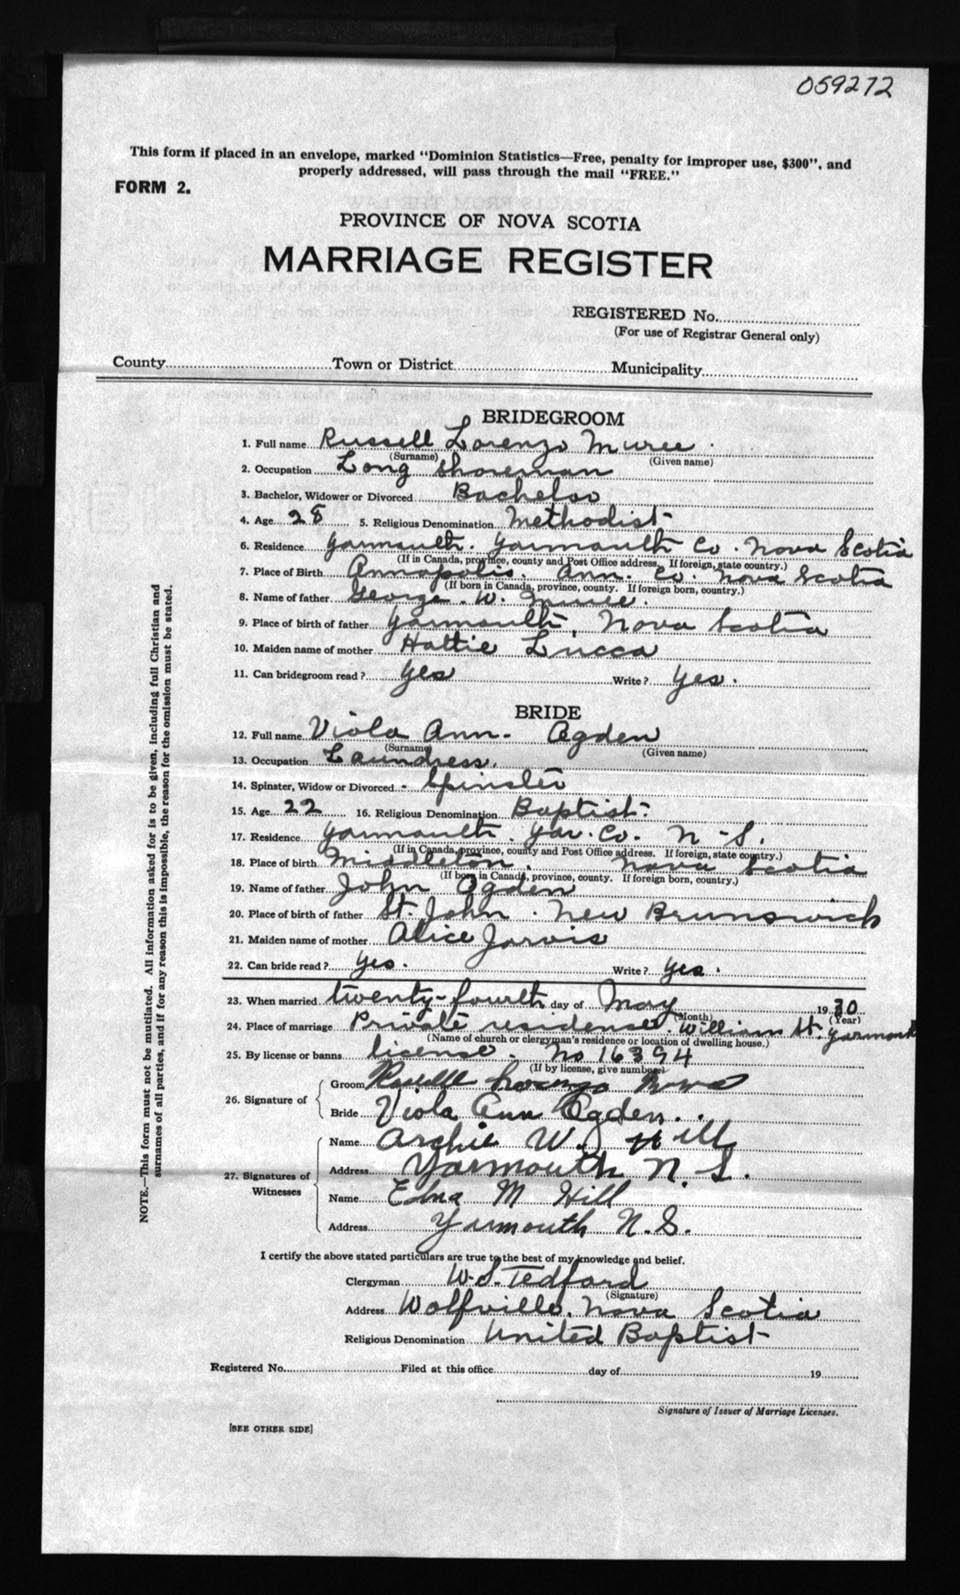 059272
This form if placed in an envelope, marked "Dominion Statistics—Free, penalty for improper use, $300", and
properly addressed, will pass through the mail "FREE."
FORM 2.
PROVINCE OF NOVA SCOTIA
MARRIAGE REGISTER
REGISTERED No.
(For use of Registrar General only)
County Town or District Municipality
BRIDEGROOM
1. Full name Russell Lorenzo
(Surname) (Given name)
2. Occupation Long shoreman
3. Bachelor, Widower or Divorced Bachelor
4. Age 28 5. Religious Denomination Methodist
6. Residence Yarmouth. Yarmouth Co. Nova Scotia
(If in Canada, province, county and Post Office address. If foreign, state country.)
7. Place of Birth Annapolis. Ann. Co. Nova Scotia
(If born in Canada, province, county. If foreign born, country.)
8. Name of father George. W.
9. Place of birth of father Yarmouth, Nova Scotia
10. Maiden name of mother Hattie Lucca
11. Can bridegroom read? Yes Write? Yes.
BRIDE
12. Full name Viola Ann. Ogden
(Surname) (Given name)
13. Occupation Laundress.
14. Spinster, Widow or Divorced - Spinster
15. Age 22 16. Religious Denomination Baptist.
17. Residence Yarmouth. Yar. Co. N-S.
(If in Canada, province, county and Post Office address. If foreign, state country.)
18. Place of birth Middleton. Nova Scotia
(If born in Canada, province, county. If foreign born, country.)
19. Name of father John Ogden
20. Place of birth of father St. John. New Brunswick
21. Maiden name of mother Alice Jarvis
22. Can bride read? Yes. Write? Yes.
23. When married twenty-fourth day of May 1930
(Month) (Year)
24. Place of marriage Private residence. William St. Yarmouth
(Name of church or clergyman's residence or location of dwelling house.)
25. By license or banns license. No 16394
(If by license, give number.)
26. Signature of
Groom
Bride Viola Ann Ogden.
27. Signatures of Witnesses
Name Archie W. Hill
Address Yarmouth N. S.
Name Edna M Hill
Address Yarmouth N.S.
I certify the above stated particulars are true to the best of my knowledge and belief.
Clergyman W.S. Tedford
(Signature)
Address Wolfville, Nova Scotia
Religious Denomination United Baptist
Registered No. Filed at this office day of 19
Signature of Issuer of Marriage Licenses.
[SEE OTHER SIDE]
NOTE.—This form must not be mutilated. All information asked for is to be given, including full Christian and
surnames of all parties, and if for any reason this is impossible, the reason for the omission must be stated.